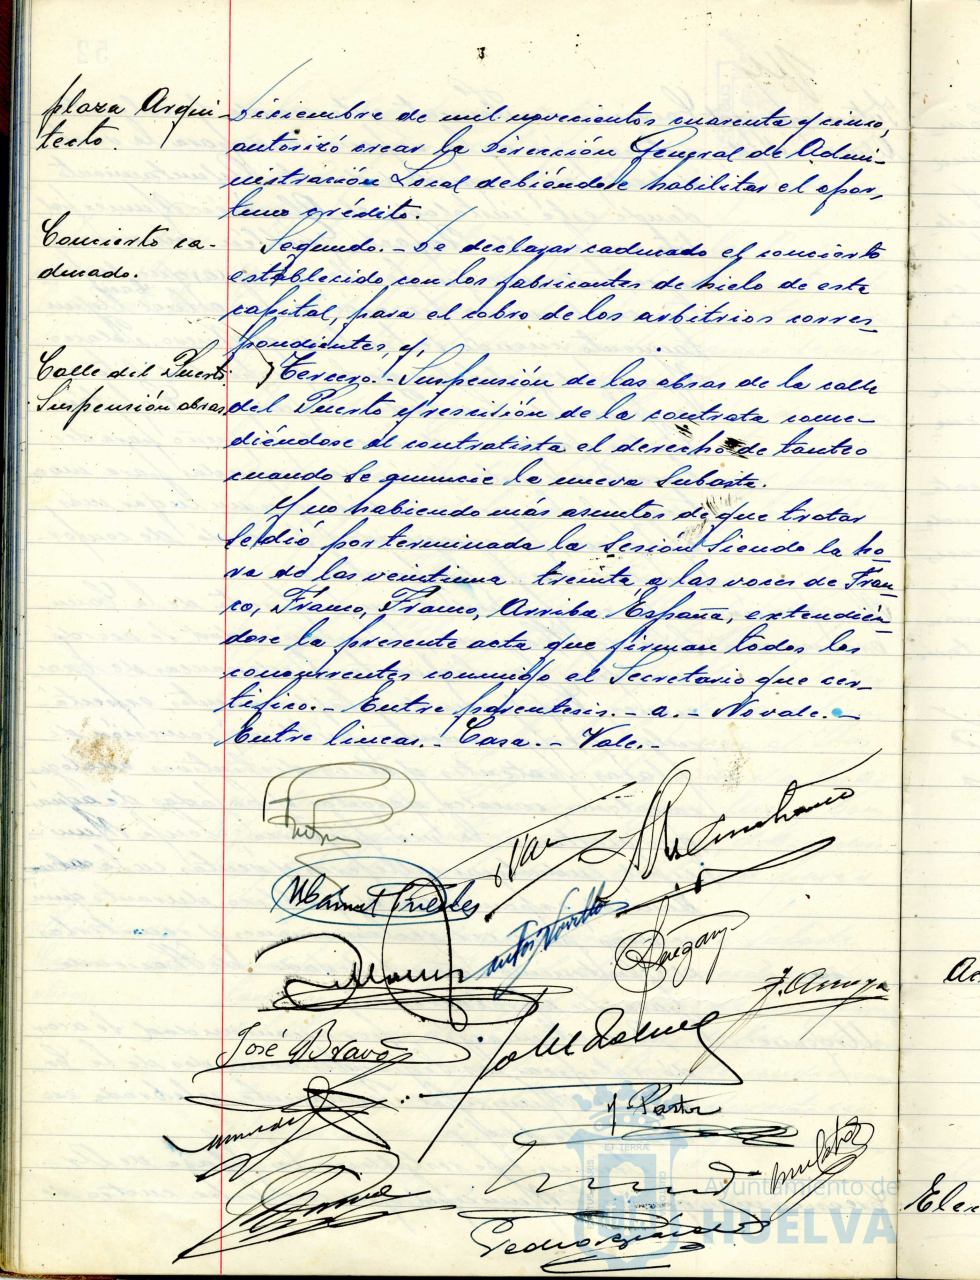 plaza Arqui-
tecto.
Diciembre de mil novecientos cuarenta y cinco,
autorizó crear la Dirección General de Admi-
nistración Local debiéndose habilitar el opor-
tuno crédito.
Concierto ca-
ducado.
Segundo.- De declarar caducado el concierto
establecido con los fabricantes de hielo de esta
capital, para el cobro de los arbitrios corres
pondientes, y,
Calle del Puerto
Suspensión obras
Tercero.- Suspensión de las obras de la calle
del Puerto y rescisión de la contrata conce-
diéndose al contratista el derecho de tanteo
cuando se anuncie la nueva subasta.
Y no habiendo más asuntos de que tratar
se dió por terminada la sesión siendo la ho-
ra de las veintiuna treinta, a las voces de Fran-
co, Franco, Franco, Arriba España, extendién-
dose la presente acta que firman todos los
concurrentes conmigo el Secretario que cer-
tifico.- Entre parentesis.- a.- No vale.-
Entre lineas.- Casa.- Vale.-
José Bravo
J. Pastor
Ayuntamiento de
HUELVA